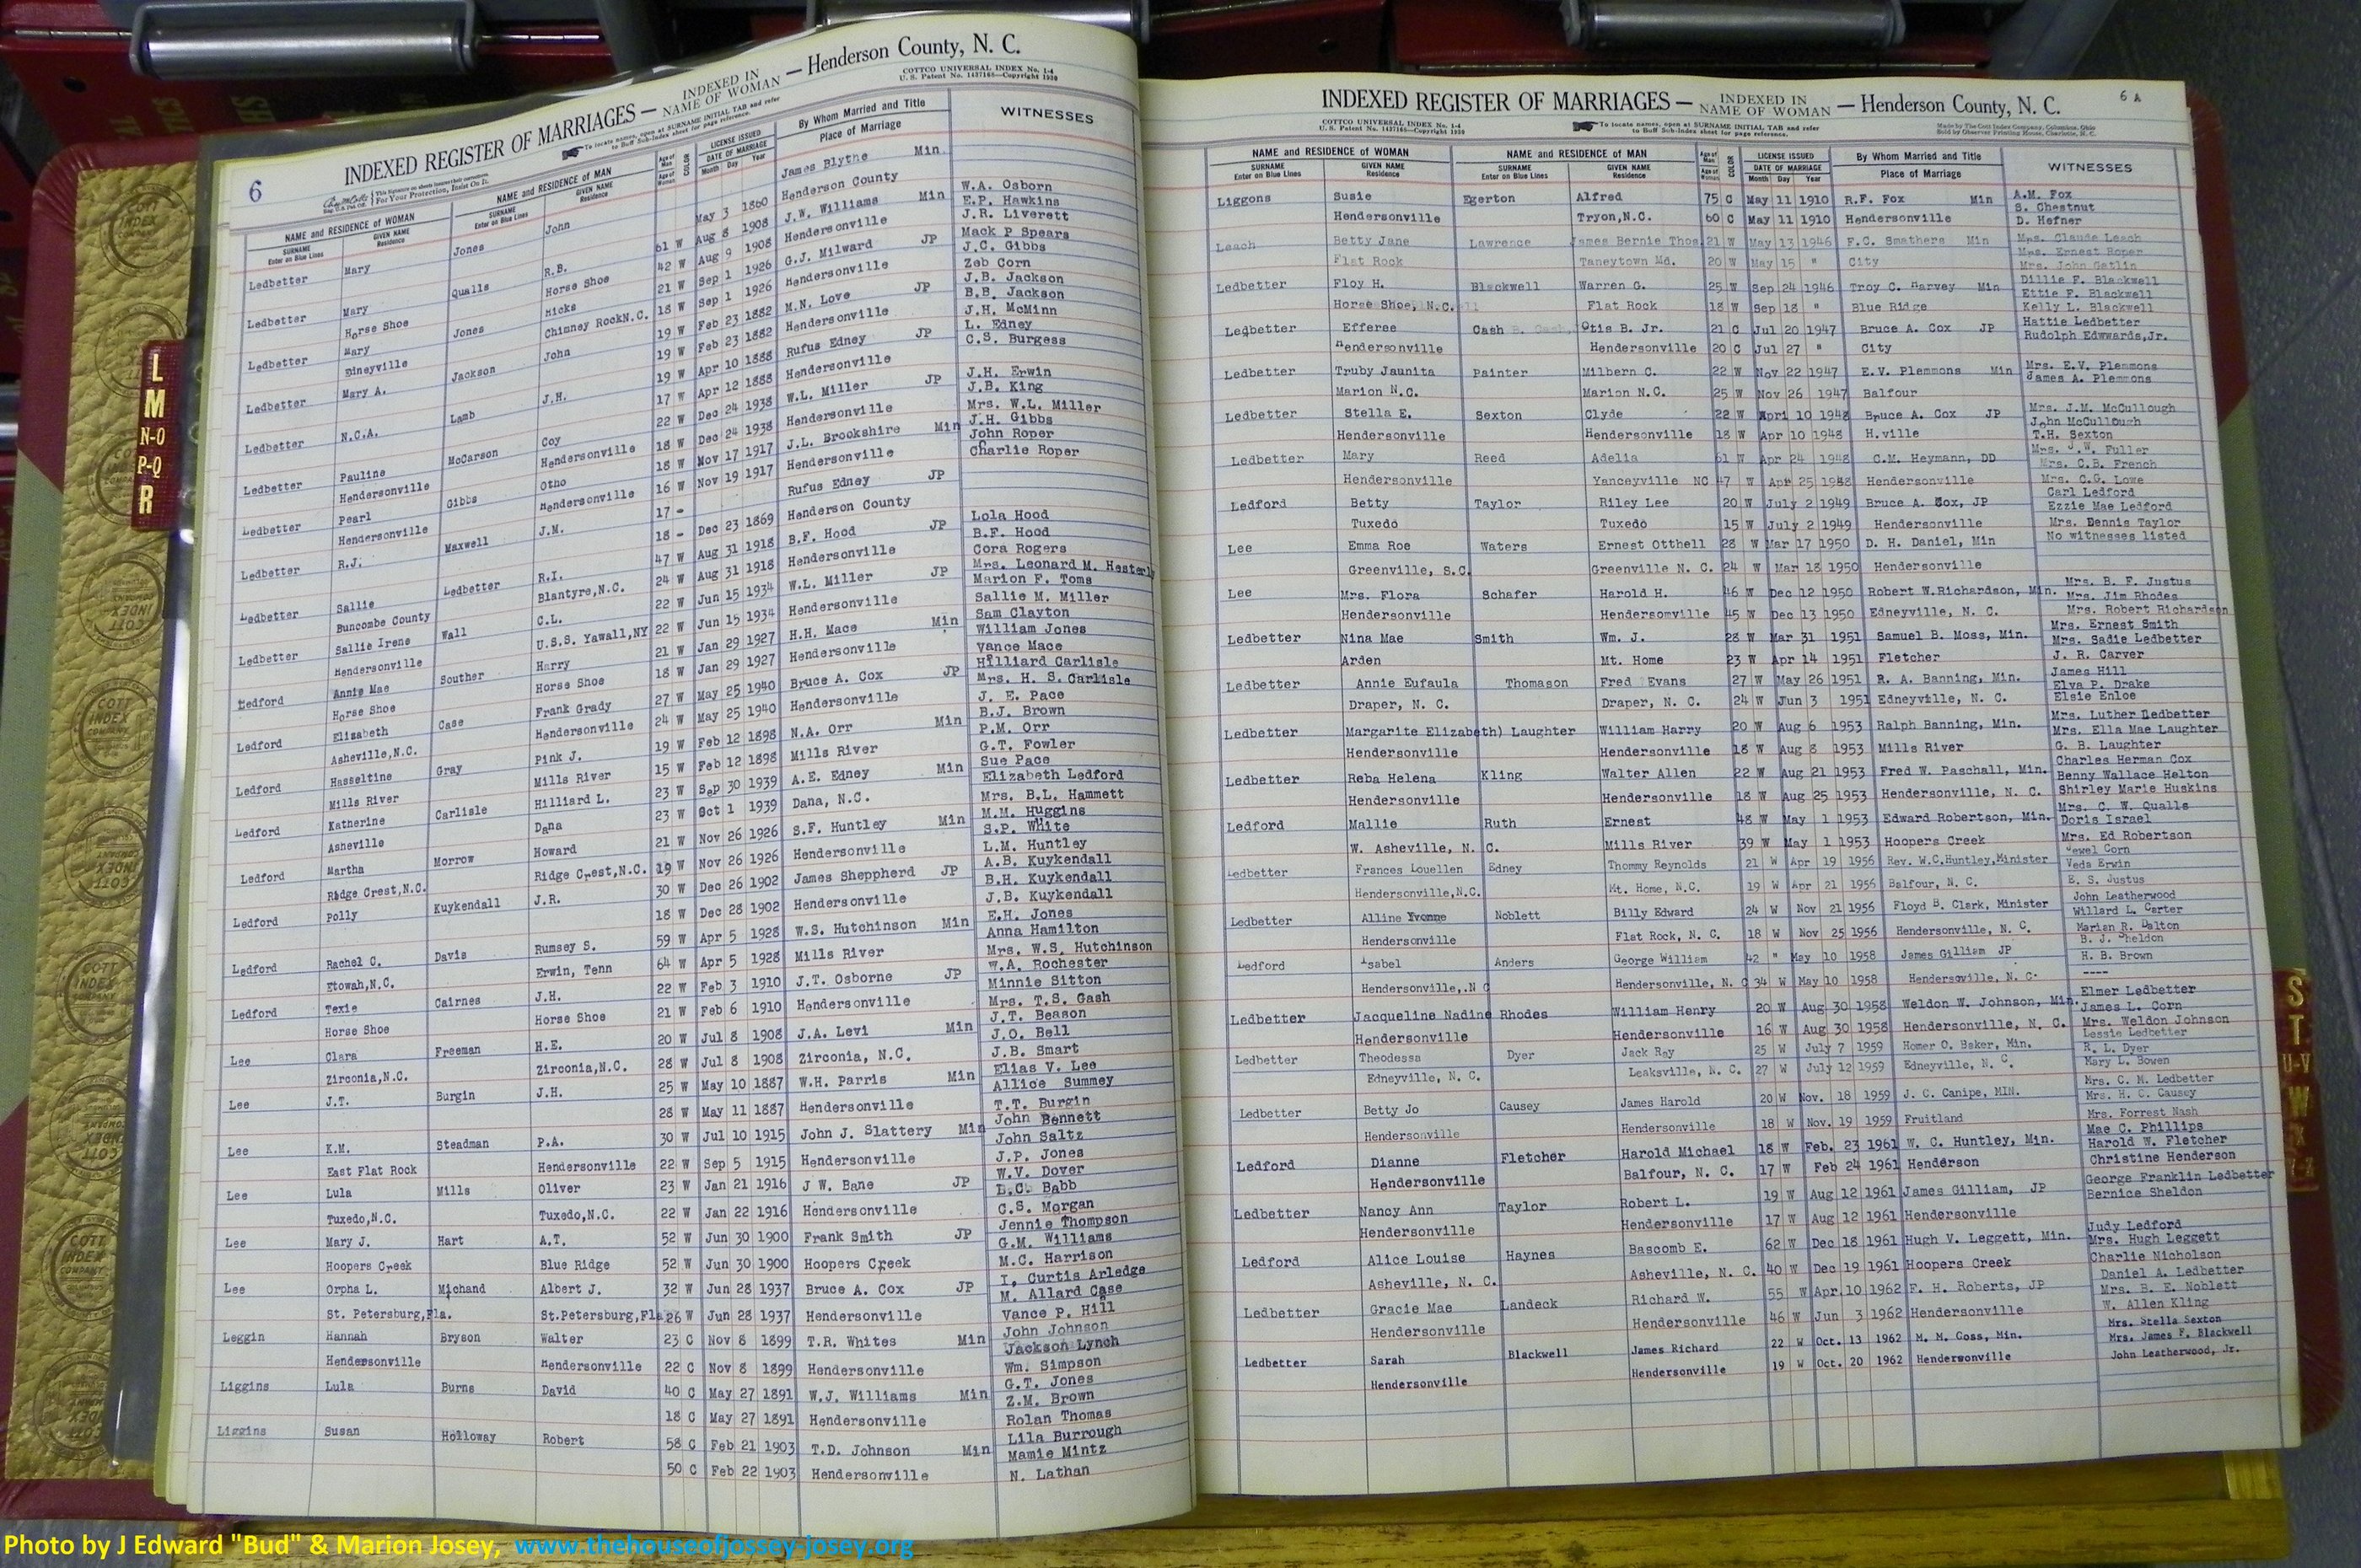 6
INDEXED REGISTER OF MARRIAGES — INDEXED IN NAME OF WOMAN — Henderson County, N. C.
COTTCO UNIVERSAL INDEX No. 1-4
U. S. Patent No. 1437168—Copyright 1930
To locate names, open at SURNAME INITIAL TAB and refer
to Buff Sub-Index sheet for page reference.
NAME and RESIDENCE OF WOMAN NAME and RESIDENCE OF MAN Age of Man Age of Woman COLOR LICENSE ISSUED By Whom Married and Title WITNESSES
SURNAME Enter on Blue Lines GIVEN NAME Residence SURNAME Enter on Blue Lines GIVEN NAME Residence DATE OF MARRIAGE Month Day Year Place of Marriage
Ledbetter Mary Jones John May 3 1860 James Blythe Min
Henderson County
Ledbetter Mary Qualls R.B. 61 W Aug 8 1908 J.W. Williams Min W.A. Osborn
E.P. Hawkins
Horse Shoe Horse Shoe 42 W Aug 9 1908 Hendersonville J.R. Liverett
Ledbetter Mary Jones Hicks 21 W Sep 1 1926 G.J. Milward JP Mack P Spears
J.C. Gibbs
Edneyville Chimney RockN.C. 18 W Sep 1 1926 Hendersonville Zeb Corn
Ledbetter Mary A. Jackson John 19 W Feb 23 1882 M.N. Love JP J.B. Jackson
B.B. Jackson
19 W Feb 23 1882 Hendersonville J.H. McMinn
Ledbetter N.C.A. Lamb J.H. 19 W Apr 10 1888 Rufus Edney JP L. Edney
C.S. Burgess
17 W Apr 12 1888 Hendersonville
Ledbetter Pauline McCarson Coy 22 W Dec 24 1938 W.L. Miller JP J.H. Erwin
J.B. King
Hendersonville Hendersonville 18 W Dec 24 1938 Hendersonville Mrs. W.L. Miller
Ledbetter Pearl Gibbs Otho 18 W Nov 17 1917 J.L. Brookshire Min J.H. Gibbs
John Roper
Hendersonville Hendersonville 16 W Nov 19 1917 Hendersonville Charlie Roper
Ledbetter R.J. Maxwell J.M. 17 - Rufus Edney JP
18 - Dec 23 1869 Henderson County
Ledbetter Sallie Ledbetter R.I. 47 W Aug 31 1918 B.F. Hood JP Lola Hood
B.F. Hood
Buncombe County Blantyre,N.C. 24 W Aug 31 1918 Hendersonville Cora Rogers
Ledbetter Sallie Irene Wall C.L. 22 W Jun 15 1934 W.L. Miller JP Mrs. Leonard M. Hesterly
Marion F. Toms
Hendersonville U.S.S. Yawall,NY 22 W Jun 15 1934 Hendersonville Sallie M. Miller
Ledford Annie Mae Souther Harry 21 W Jan 29 1927 H.H. Mace Min Sam Clayton
William Jones
Horse Shoe Horse Shoe 18 W Jan 29 1927 Hendersonville Vance Mace
Ledford Elizabeth Case Frank Grady 27 W May 25 1940 Bruce A. Cox JP Hilliard Carlisle
Mrs. H. S. Carlisle
Asheville,N.C. Hendersonville 24 W May 25 1940 Hendersonville J. E. Pace
Ledford Hasseltine Gray Pink J. 19 W Feb 12 1898 N.A. Orr Min B.J. Brown
P.M. Orr
Mills River Mills River 15 W Feb 12 1898 Mills River G.T. Fowler
Ledford Katherine Carlisle Hilliard L. 23 W Sep 30 1939 A.E. Edney Min Sue Pace
Elizabeth Ledford
Asheville Dana 23 W Oct 1 1939 Dana, N.C. Mrs. B.L. Hammett
Ledford Martha Morrow Howard 21 W Nov 26 1926 S.F. Huntley Min M.M. Huggins
S.P. White
Ridge Crest,N.C. Ridge Crest,N.C. 19 W Nov 26 1926 Hendersonville L.M. Huntley
Ledford Polly Kuykendall J.R. 30 W Dec 26 1902 James Sheppherd JP A.B. Kuykendall
B.H. Kuykendall
18 W Dec 28 1902 Hendersonville J.B. Kuykendall
Ledford Rachel C. Davis Rumsey S. 59 W Apr 5 1928 W.S. Hutchinson Min E.H. Jones
Anna Hamilton
Etowah,N.C. Erwin, Tenn 64 W Apr 5 1928 Mills River Mrs. W.S. Hutchinson
Ledford Texie Cairnes J.H. 22 W Feb 3 1910 J.T. Osborne JP W.A. Rochester
Minnie Sitton
Horse Shoe Horse Shoe 21 W Feb 6 1910 Hendersonville Mrs. T.S. Cash
Lee Clara Freeman H.E. 20 W Jul 8 1908 J.A. Levi Min J.T. Beason
J.O. Bell
Zirconia,N.C. Zirconia,N.C. 28 W Jul 8 1908 Zirconia, N.C. J.B. Smart
Lee J.T. Burgin J.H. 25 W May 10 1887 W.H. Parris Min Elias V. Lee
Allice Summey
28 W May 11 1887 Hendersonville T.T. Burgin
Lee K.M. Steadman P.A. 30 W Jul 10 1915 John J. Slattery Min John Bennett
John Saltz
East Flat Rock Hendersonville 22 W Sep 5 1915 Hendersonville J.P. Jones
Lee Lula Mills Oliver 23 W Jan 21 1916 J W. Bane JP W.V. Dover
D.C. Babb
Tuxedo,N.C. Tuxedo,N.C. 22 W Jan 22 1916 Hendersonville C.S. Morgan
Lee Mary J. Hart A.T. 52 W Jun 30 1900 Frank Smith JP Jennie Thompson
G.M. Williams
Hoopers Creek Blue Ridge 52 W Jun 30 1900 Hoopers Creek M.C. Harrison
Lee Orpha L. Michand Albert J. 32 W Jun 28 1937 Bruce A. Cox JP I, Curtis Arledge
M. Allard Case
St. Petersburg,Fla. St.Petersburg,Fla 26 W Jun 28 1937 Hendersonville Vance P. Hill
Leggin Hannah Bryson Walter 23 C Nov 8 1899 T.R. Whites Min John Johnson
Jackson Lynch
Hendersonville Hendersonville 22 C Nov 8 1899 Hendersonville Wm. Simpson
Liggins Lula Burns David 40 C May 27 1891 W.J. Williams Min G.T. Jones
Z.M. Brown
18 C May 27 1891 Hendersonville Rolan Thomas
Liggins Susan Holloway Robert 58 C Feb 21 1903 T.D. Johnson Min Lila Burrough
Mamie Mintz
50 C Feb 22 1903 Hendersonville N. Lathan
6 A
INDEXED REGISTER OF MARRIAGES — INDEXED IN NAME OF WOMAN — Henderson County, N. C.
COTTCO UNIVERSAL INDEX No. 1-4
U. S. Patent No. 1437168—Copyright 1930
To locate names, open at SURNAME INITIAL TAB and refer
to Buff Sub-Index sheet for page reference.
Made by The Cott Index Company, Columbus, Ohio
Sold by Observer Printing House, Charlotte, N. C.
NAME and RESIDENCE OF WOMAN NAME and RESIDENCE OF MAN Age of Man Age of Woman COLOR LICENSE ISSUED By Whom Married and Title WITNESSES
SURNAME Enter on Blue Lines GIVEN NAME Residence SURNAME Enter on Blue Lines GIVEN NAME Residence DATE OF MARRIAGE Month Day Year Place of Marriage
Liggons Susie Egerton Alfred 75 C May 11 1910 R.F. Fox Min A.M. Fox
S. Chestnut
Hendersonville Tryon,N.C. 60 C May 11 1910 Hendersonville D. Hefner
Leach Betty Jane Lawrence James Bernie Thos 21 W May 13 1946 F.C. Smathers Min Mrs. Claude Leach
Mrs. Ernest Roper
Flat Rock Taneytown Md. 20 W May 15 " City Mrs. John Gatlin
Ledbetter Floy H. Blackwell Warren G. 25 W Sep 24 1946 Troy C. Harvey Min Dillie F. Blackwell
Ettie F. Blackwell
Horse Shoe, N.C. Flat Rock 18 W Sep 18 " Blue Ridge Kelly L. Blackwell
Ledbetter Efferee Cash Otis B. Jr. 21 C Jul 20 1947 Bruce A. Cox JP Hattie Ledbetter
Rudolph Edwwards,Jr.
Hendersonville Hendersonville 20 C Jul 27 " City
Ledbetter Truby Jaunita Painter Milbern C. 22 W Nov 22 1947 E.V. Plemmons Min Mrs. E.V. Plemmons
James A. Plemmons
Marion N.C. Marion N.C. 25 W Nov 26 1947 Balfour
Ledbetter Stella E. Sexton Clyde 22 W Aprl 10 1948 Bruce A. Cox JP Mrs. J.M. McCullough
John McCullough
Hendersonville Hendersonville 18 W Apr 10 1948 H.ville T.H. Sexton
Ledbetter Mary Reed Adelia 61 W Apr 24 1948 C.M. Heymann, DD Mrs. J.W. Fuller
Mrs. C.B. French
Hendersonville Yanceyville NC 47 W Apr 25 1948 Hendersonville Mrs. C.G. Lowe
Ledford Betty Taylor Riley Lee 20 W July 2 1949 Bruce A. Cox, JP Carl Ledford
Ezzie Mae Ledford
Tuxedo Tuxedo 15 W July 2 1949 Hendersonville Mrs. Dennis Taylor
Lee Emma Roe Waters Ernest Otthell 28 W Mar 17 1950 D. H. Daniel, Min No witnesses listed
Greenville, S.C. Greenville N. C. 24 W Mar 18 1950 Hendersonville
Lee Mrs. Flora Schafer Harold H. 46 W Dec 12 1950 Robert W.Richardson, Min. Mrs. B. F. Justus
Mrs. Jim Rhodes
Hendersonville Hendersomville 45 W Dec 13 1950 Edneyville, N. C. Mrs. Robert Richardson
Ledbetter Nina Mae Smith Wm. J. 28 W Mar 31 1951 Samuel B. Moss, Min. Mrs. Ernest Smith
Mrs. Sadie Ledbetter
Arden Mt. Home 23 W Apr 14 1951 Fletcher J. R. Carver
Ledbetter Annie Eufaula Thomason Fred Evans 27 W May 26 1951 R. A. Banning, Min. James Hill
Elva P. Drake
Draper, N. C. Draper, N. C. 24 W Jun 3 1951 Edneyville, N. C. Elsie Enloe
Ledbetter Margarite Elizabeth) Laughter William Harry 20 W Aug 6 1953 Ralph Banning, Min. Mrs. Luther Ledbetter
Mrs. Ella Mae Laughter
Hendersonville Hendersonville 18 W Aug 8 1953 Mills River G. B. Laughter
Ledbetter Reba Helena Kling Walter Allen 22 W Aug 21 1953 Fred W. Paschall, Min. Charles Herman Cox
Benny Wallace Helton
Hendersonville Hendersonville 18 W Aug 25 1953 Hendersonville, N. C. Shirley Marie Huskins
Ledford Mallie Ruth Ernest 48 W May 1 1953 Edward Robertson, Min. Mrs. C. W. Qualls
Doris Israel
W. Asheville, N. C. Mills River 39 W May 1 1953 Hoopers Creek Mrs. Ed Robertson
Ledbetter Frances Louellen Edney Thommy Reynolds 21 W Apr 19 1956 Rev. W.C.Huntley,Minister Jewel Corn
Veda Erwin
Hendersonville,N.C. Mt. Home, N.C. 19 W Apr 21 1956 Balfour, N. C. E. S. Justus
Ledbetter Alline Yvonne Noblett Billy Edward 24 W Nov 21 1956 Floyd B. Clark, Minister John Leatherwood
Willard L. Carter
Hendersonville Flat Rock, N. C. 18 W Nov 25 1956 Hendersonville, N. C. Marian R. Dalton
Ledford Isabel Anders George William 42 " May 10 1958 James Gilliam JP B. J. Sheldon
H. B. Brown
Hendersonville,.N C Hendersonville, N. C 34 W May 10 1958 Hendersonville, N. C. ----
Ledbetter Jacqueline Nadine Rhodes William Henry 20 W Aug 30 1958 Weldon W. Johnson, Min. Elmer Ledbetter
James L. Corn
Hendersonville Hendersonville 16 W Aug 30 1958 Hendersonville, N. C. Mrs. Weldon Johnson
Ledbetter Theodessa Dyer Jack Ray 25 W July 7 1959 Homer O. Baker, Min. Lessie Ledbetter
R. L. Dyer
Edneyville, N. C. Leaksville, N. C. 27 W July 12 1959 Edneyville, N. C. Mary L. Bowen
Ledbetter Betty Jo Causey James Harold 20 W Nov. 18 1959 J. C. Canipe, MIN. Mrs. C. M. Ledbetter
Mrs. H. C. Causey
Hendersonville Hendersonville 18 W Nov. 19 1959 Fruitland Mrs. Forrest Nash
Ledford Dianne Fletcher Harold Michael 18 W Feb. 23 1961 W. C. Huntley, Min. Mae C. Phillips
Harold W. Fletcher
Hendersonville Balfour, N. C. 17 W Feb 24 1961 Henderson Christine Henderson
Ledbetter Nancy Ann Taylor Robert L. 19 W Aug 12 1961 James Gilliam, JP George Franklin Ledbetter
Bernice Sheldon
Hendersonville Hendersonville 17 W Aug 12 1961 Hendersonville
Ledford Alice Louise Haynes Bascomb E. 62 W Dec 18 1961 Hugh V. Leggett, Min. Judy Ledford
Mrs. Hugh Leggett
Asheville, N. C. Asheville, N. C. 40 W Dec 19 1961 Hoopers Creek Charlie Nicholson
Ledbetter Gracie Mae Landeck Richard W. 55 W Apr.10 1962 F. H. Roberts, JP Daniel A. Ledbetter
Mrs. B. E. Noblett
Hendersonville Hendersonville 46 W Jun 3 1962 Hendersonville W. Allen Kling
Ledbetter Sarah Blackwell James Richard 22 W Oct. 13 1962 M. M. Goss, Min. Mrs. Stella Sexton
Mrs. James F. Blackwell
Hendersonville Hendersonville 19 W Oct. 20 1962 Hendersonville John Leatherwood, Jr.
L
M
N-O
P-Q
R
S
T
U-V
W
Photo by J Edward "Bud" & Marion Josey, www.thehouseofjossey-josey.org